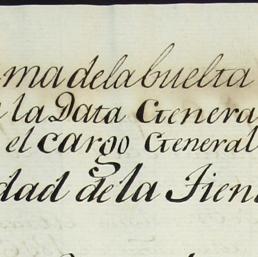 ma de la buelta
la Data General
el cargo General
dad de la Tien